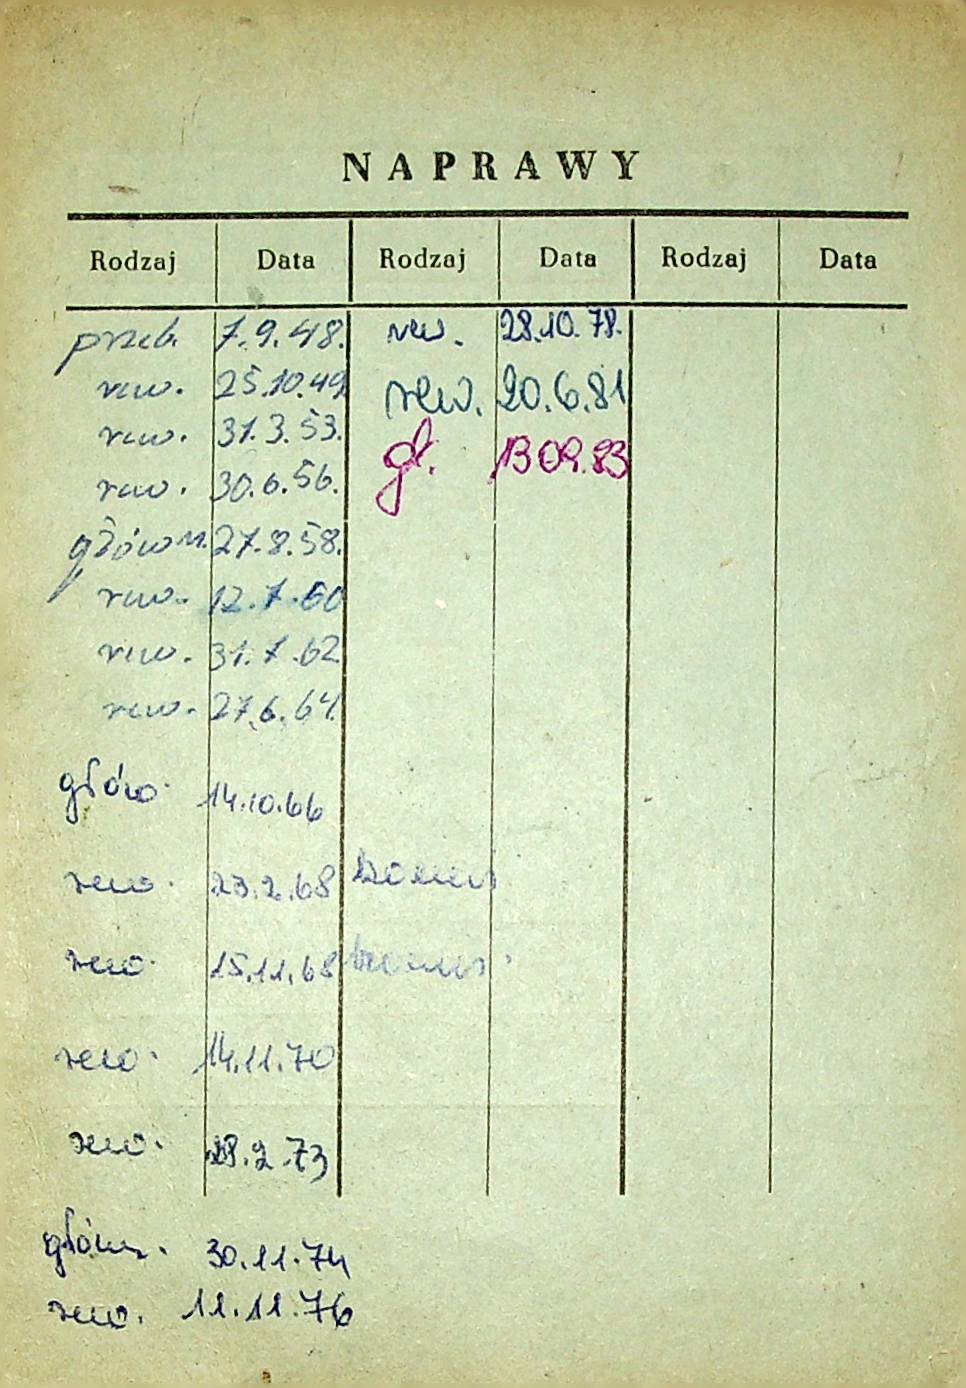 NAPRAWY
Rodzaj Data Rodzaj Data Rodzaj Data
przeb. 7.9.48. rew. 28.10.78.
rew. 25.10.49 rew. 20.6.81
rew. 31.3.53. gł. 13.09.83
rew. 30.6.56.
główn. 27.8.58.
rew. 12.7.60
rew. 31.7.62
rew. 27.6.64.
głów. 14.10.66
rew. 23.2.68
rew. 15.11.68
rew. 14.11.70
rew. 28.2.73
główn. 30.11.74
rew. 11.11.76